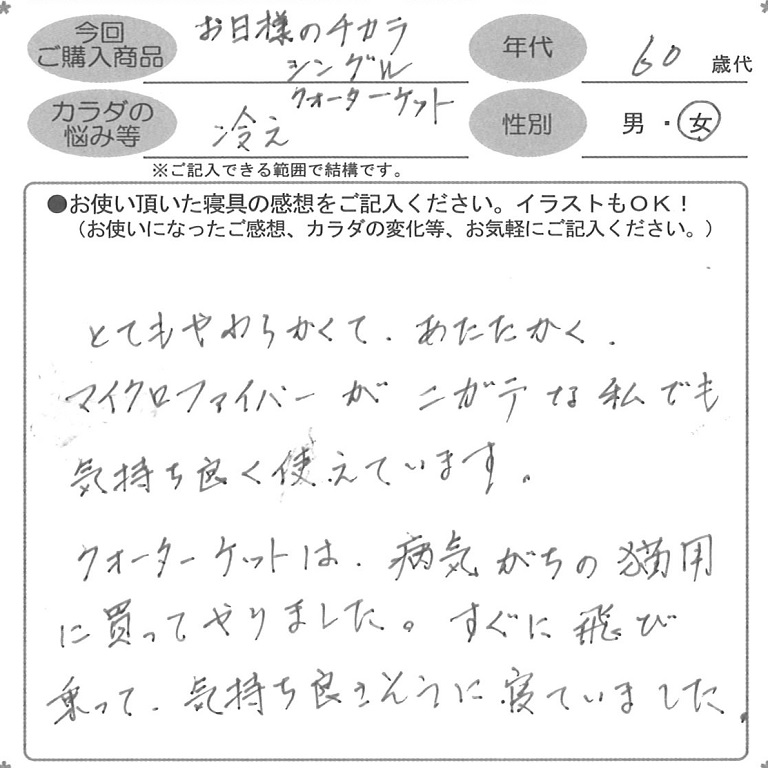 今回
ご購入商品
お日様のチカラ
シングル
クォーターケット
年代
60 歳代
カラダの
悩み等
冷え
性別
男・女
※ご記入できる範囲で結構です。
●お使い頂いた寝具の感想をご記入ください。イラストもOK!
(お使いになったご感想、カラダの変化等、お気軽にご記入ください。)
とてもやわらかくて、あたたかく、
マイクロファイバーがニガテな私でも
気持ち良く使えています。
クォーターケットは、病気がちの猫用
に買ってやりました。すぐに飛び
乗って、気持ち良さそうに寝ていました。